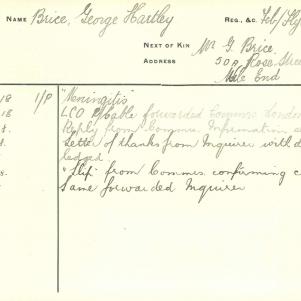 NAME Brice, George Hartley REG., &C.
NEXT OF KIN Mr G. Brice,
ADDRESS 50 Rose Stree
Mile End
18 I/P "Meningitis"
18 LCO P/Cable forwarded Commsc. London
Reply from Commsc. Information
Letter of thanks from Inquirer with
ledged
8. "Slip" from Commsc. confirming c
Same forwarded Inquirer